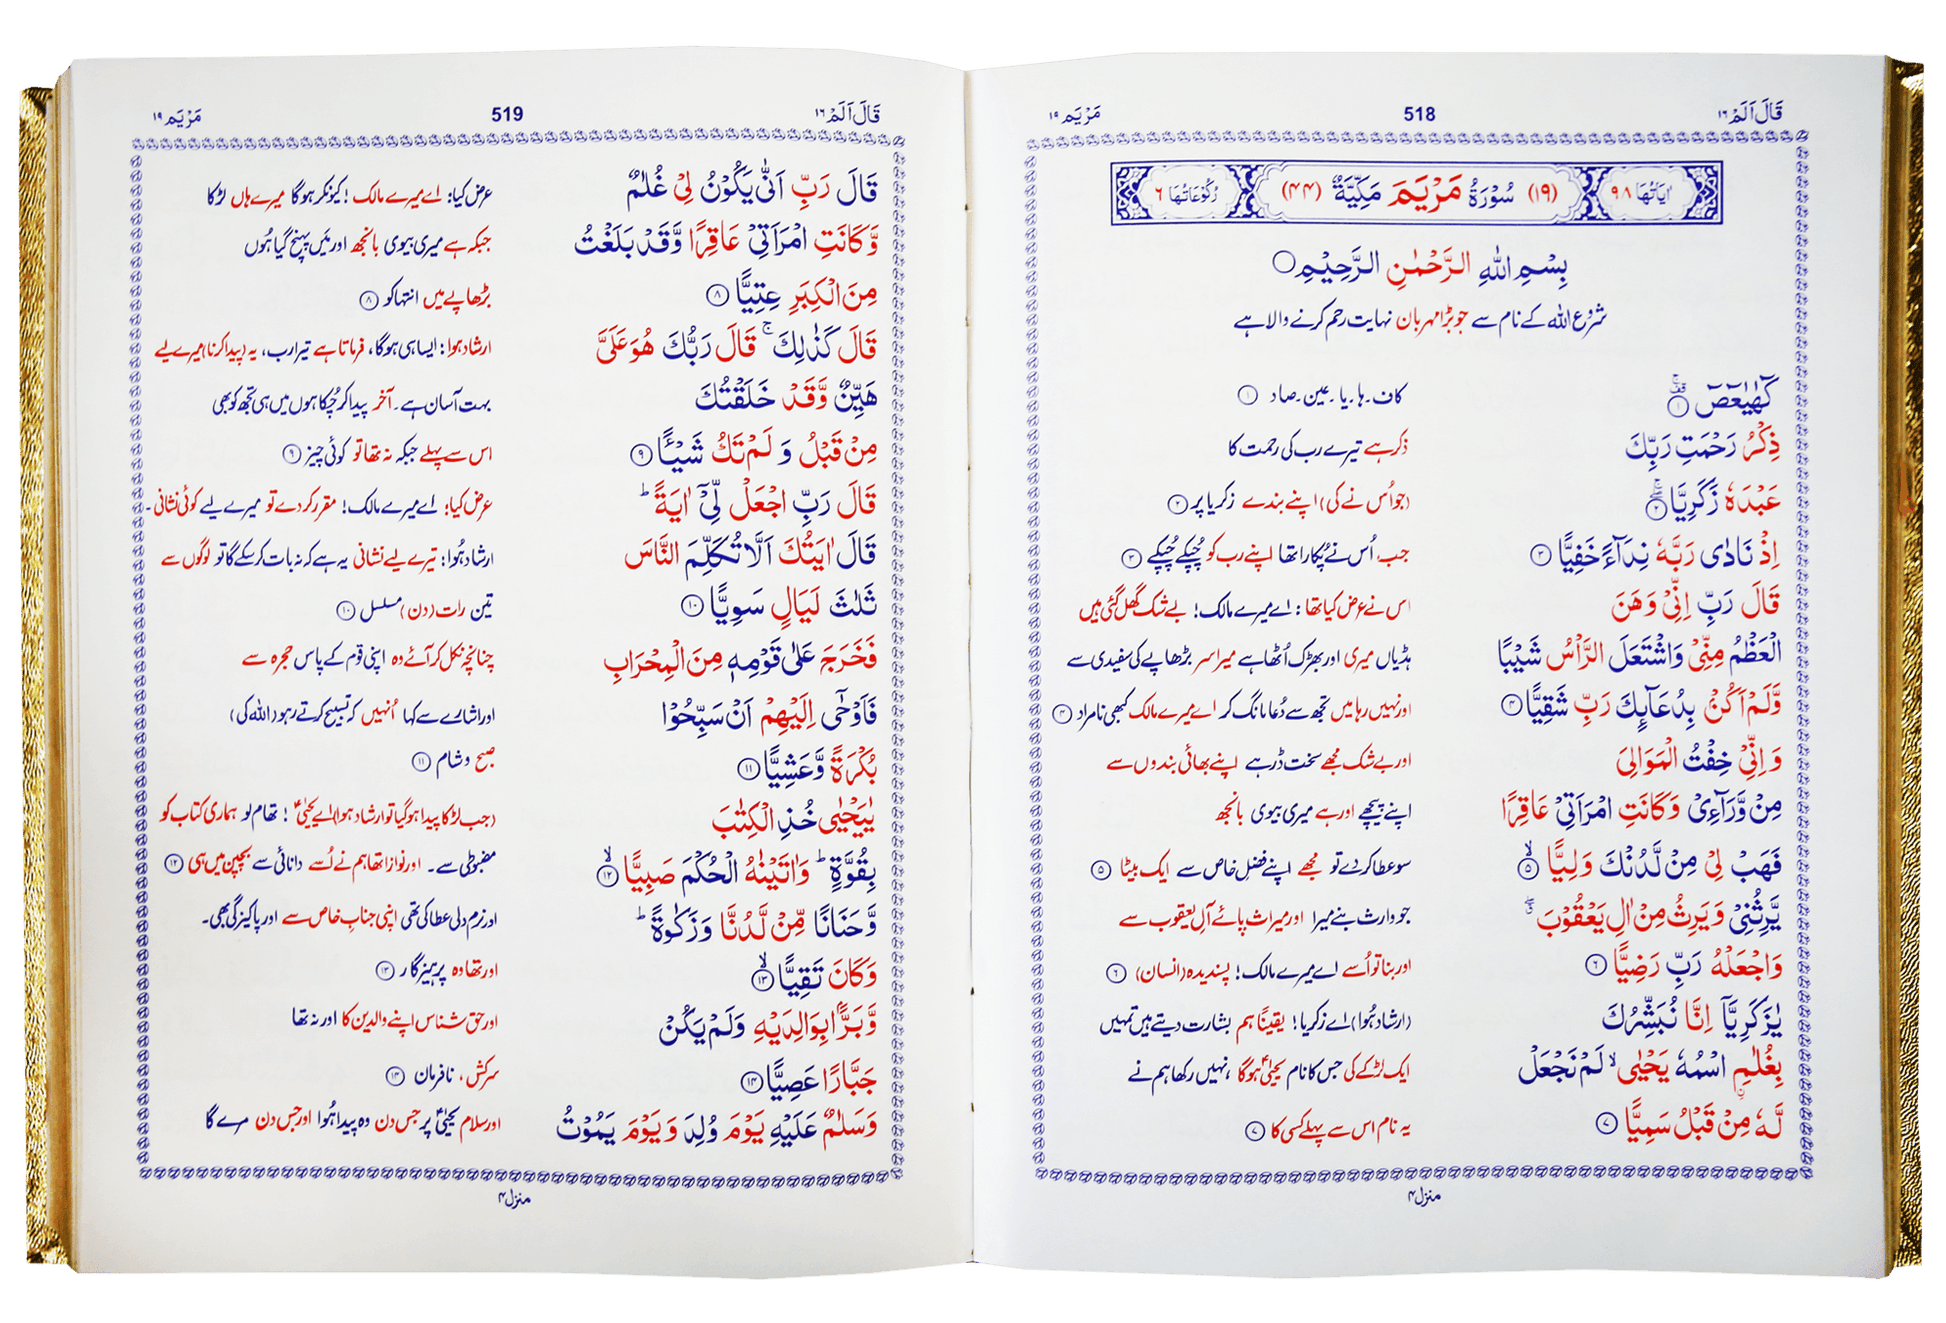 قَالَ اَلَمْ ۱۶ 518 مَرْيَم ۱۹
اٰیَاتُهَا ۹۸ (۱۹) سُوْرَةُ مَرْیَمَ مَكِّیَّةٌ (۴۴) رُكُوْعَاتُهَا ۶
بِسْمِ اللّٰهِ الرَّحْمٰنِ الرَّحِیْمِ
شروع اللہ کے نام سے جو بڑا مہربان نہایت رحم کرنے والا ہے
كٓهٰیٰعٓصٓ ۚ ۱ کاف۔ ہا۔ یا۔ عین۔ صاد ۱
ذِكْرُ رَحْمَتِ رَبِّكَ ذکر ہے تیرے رب کی رحمت کا
عَبْدَهٗ زَكَرِیَّا ۖ ۚ ۲ (جو اُس نے کی) اپنے بندے زکریا پر ۲
اِذْ نَادٰى رَبَّهٗ نِدَآءً خَفِیًّا ۳ جب اُس نے پُکارا تھا اپنے رب کو چُپکے چُپکے ۳
قَالَ رَبِّ اِنِّیْ وَهَنَ اس نے عرض کیا تھا: اے میرے مالک! بے شک گھل گئی ہیں
الْعَظْمُ مِنِّیْ وَاشْتَعَلَ الرَّاْسُ شَیْبًا ہڈیاں میری اور بھڑک اُٹھا ہے میرا سر بڑھاپے کی سفیدی سے
وَّلَمْ اَكُنْۢ بِدُعَآىِٕكَ رَبِّ شَقِیًّا ۴ اور نہیں رہا میں تجھ سے دُعا مانگ کر اے میرے مالک کبھی نامراد ۴
وَاِنِّیْ خِفْتُ الْمَوَالِیَ اور بے شک مجھے سخت ڈر ہے اپنے بھائی بندوں سے
مِنْ وَّرَآءِیْ وَكَانَتِ امْرَاَتِیْ عَاقِرًا اپنے پیچھے اور ہے میری بیوی بانجھ
فَهَبْ لِیْ مِنْ لَّدُنْكَ وَلِیًّا ۙ ۵ سو عطا کر دے تو مجھے اپنے فضل خاص سے ایک بیٹا ۵
یَّرِثُنِیْ وَیَرِثُ مِنْ اٰلِ یَعْقُوْبَ ۖ جو وارث بنے میرا اور میراث پائے آلِ یعقوب سے
وَاجْعَلْهُ رَبِّ رَضِیًّا ۶ اور بنا تو اُسے اے میرے مالک! پسندیدہ (انسان) ۶
یٰزَكَرِیَّاۤ اِنَّا نُبَشِّرُكَ (ارشاد ہُوا) اے زکریا! یقیناً ہم بشارت دیتے ہیں تمہیں
بِغُلٰمِ ِ۟اسْمُهٗ یَحْیٰى ۙ لَمْ نَجْعَلْ ایک لڑکے کی جس کا نام یحییٰؑ ہوگا، نہیں رکھا ہم نے
لَّهٗ مِنْ قَبْلُ سَمِیًّا ۷ یہ نام اس سے پہلے کسی کا ۷
منزل ۴
قَالَ اَلَمْ ۱۶ 519 مَرْيَم ۱۹
قَالَ رَبِّ اَنّٰى یَكُوْنُ لِیْ غُلٰمٌ عرض کیا: اے میرے مالک! کیونکر ہوگا میرے ہاں لڑکا
وَّكَانَتِ امْرَاَتِیْ عَاقِرًا وَّقَدْ بَلَغْتُ جبکہ ہے میری بیوی بانجھ اور میں پہنچ گیا ہُوں
مِنَ الْكِبَرِ عِتِیًّا ۸ بڑھاپے میں انتہا کو ۸
قَالَ كَذٰلِكَ ۚ قَالَ رَبُّكَ هُوَ عَلَیَّ ارشاد ہوا: ایسا ہی ہوگا، فرماتا ہے تیرا رب، یہ (پیدا کرنا) میرے لیے
هَیِّنٌ وَّقَدْ خَلَقْتُكَ بہت آسان ہے۔ آخر پیدا کر چُکا ہوں میں ہی تجھ کو بھی
مِنْ قَبْلُ وَلَمْ تَكُ شَیْـًٔا ۹ اس سے پہلے جبکہ نہ تھا تو کوئی چیز ۹
قَالَ رَبِّ اجْعَلْ لِّیْۤ اٰیَةً ؕ عرض کیا: اے میرے مالک! مقرر کر دے تو میرے لیے کوئی نشانی۔
قَالَ اٰیَتُكَ اَلَّا تُكَلِّمَ النَّاسَ ارشاد ہُوا: تیرے لیے نشانی یہ ہے کہ نہ بات کر سکے گا تو لوگوں سے
ثَلٰثَ لَیَالٍ سَوِیًّا ۱۰ تین رات (دن) مسلسل ۱۰
فَخَرَجَ عَلٰى قَوْمِهٖ مِنَ الْمِحْرَابِ چنانچہ نکل کر آئے وہ اپنی قوم کے پاس حجرہ سے
فَاَوْحٰۤى اِلَیْهِمْ اَنْ سَبِّحُوْا اور اشارے سے کہا اُنہیں کہ تسبیح کرتے رہو (اللہ کی)
بُكْرَةً وَّعَشِیًّا ۱۱ صبح و شام ۱۱
یٰیَحْیٰى خُذِ الْكِتٰبَ (جب لڑکا پیدا ہو گیا تو ارشاد ہوا) اے یحییٰؑ! تھام لو ہماری کتاب کو
بِقُوَّةٍ ؕ وَاٰتَیْنٰهُ الْحُكْمَ صَبِیًّا ۙ ۱۲ مضبوطی سے۔ اور نوازا تھا ہم نے اُسے دانائی سے بچپن میں ہی ۱۲
وَّحَنَانًا مِّنْ لَّدُنَّا وَزَكٰوةً ؕ اور نرم دلی عطا کی تھی اپنی جناب خاص سے اور پاکیزگی بھی۔
وَكَانَ تَقِیًّا ۙ ۱۳ اور تھا وہ پرہیزگار ۱۳
وَّبَرًّۢا بِوَالِدَیْهِ وَلَمْ یَكُنْ اور حق شناس اپنے والدین کا اور نہ تھا
جَبَّارًا عَصِیًّا ۱۴ سرکش، نافرمان ۱۴
وَسَلٰمٌ عَلَیْهِ یَوْمَ وُلِدَ وَیَوْمَ یَمُوْتُ اور سلام یحییٰؑ پر جس دن وہ پیدا ہُوا اور جس دن مرے گا
منزل ۴